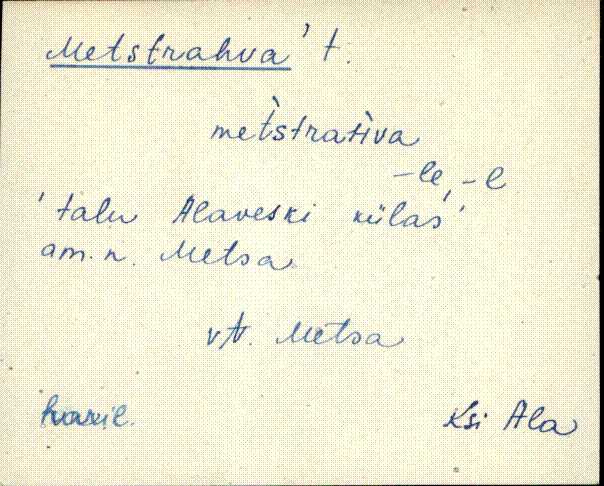 Metstrahva 't.
met̀straħva
-le, -l
'talu Alaveski külas'
am. n. Metsa
vt. Metsa
haril.
Ksi Ala